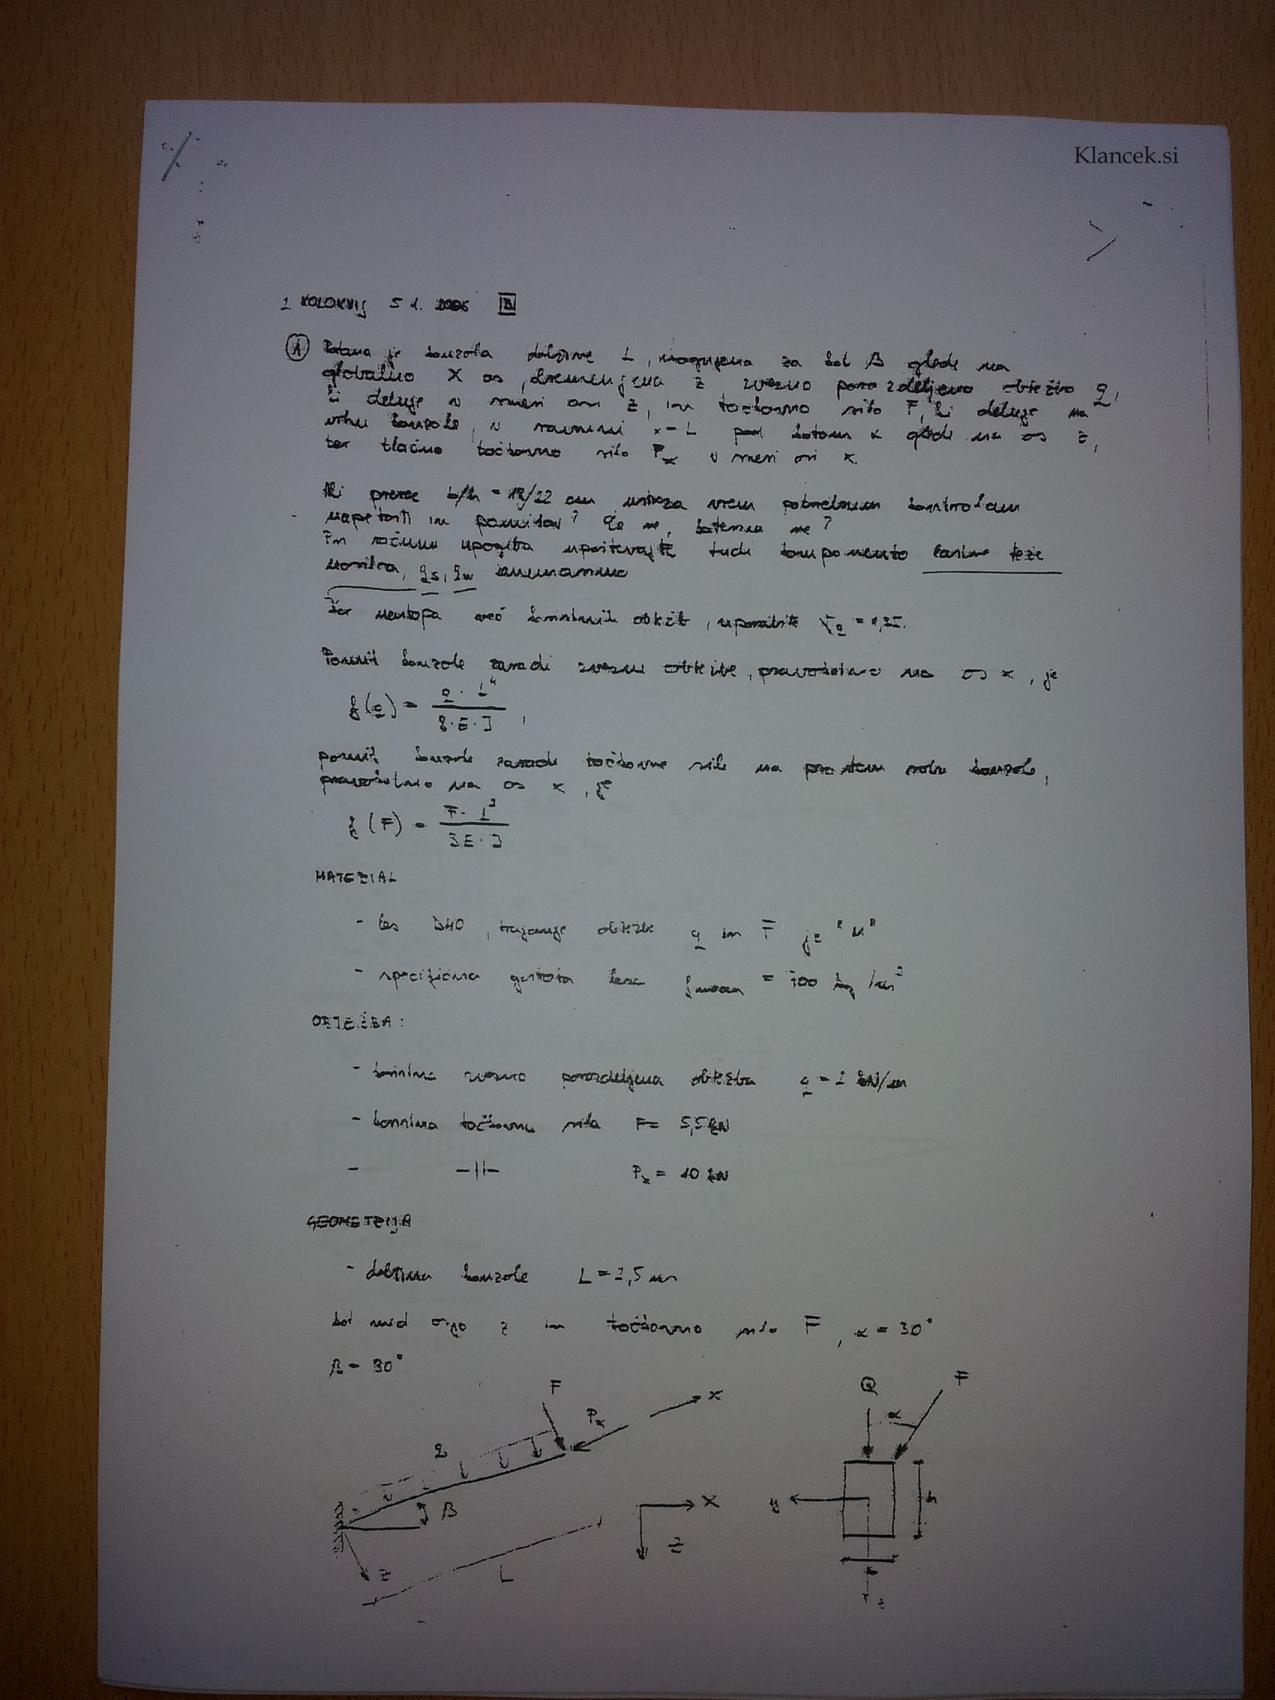 Klancek.si
1 KOLOKVIJ 5 1. 2006 B
1 Podana je konzola dolžine L, nagnjena za kot β glede na
globalno X os, obremenjena z zvezno porazdeljeno obtežbo q,
ki deluje v smeri osi z, in točkovno silo F, ki deluje na
vrhu konzole, v ravnini x=L pod kotom α glede na os z,
ter tlačno točkovno silo Px v smeri osi x.
Ali prerez b/h = 18/22 cm ustreza vsem potrebnim kontrolam
napetosti in pomikov? Če ne, katerim ne?
Pri računu upogiba upoštevajte tudi komponento lastne teže
nosilca,
Ker nastopa več koristnih obtežb, uporabite
Pomik konzole zaradi zvezne obtežbe, pravokotno na os x, je
f(q) = q · L⁴
8·E·I ,
pomik konzole zaradi točkovne sile na prostem robu konzole,
pravokotno na os x, je
f(F) = F · L³
3E·I
MATERIAL
- les D40, trajanje obtežbe q in F je "M"
- specifična gostota lesa ρmean = 700 kg/m³
OBTEŽBA:
- koristna zvezno porazdeljena obtežba q = 2 kN/m
- koristna točkovna sila F = 5,5 kN
- -||- Px = 10 kN
GEOMETRIJA
- dolžina konzole L = 2,5 m
kot med osjo z in točkovno silo F, α = 30°
β = 30°
F
Px
x
q
β
z
L
X
Z
Q
α
F
y
h
b
z